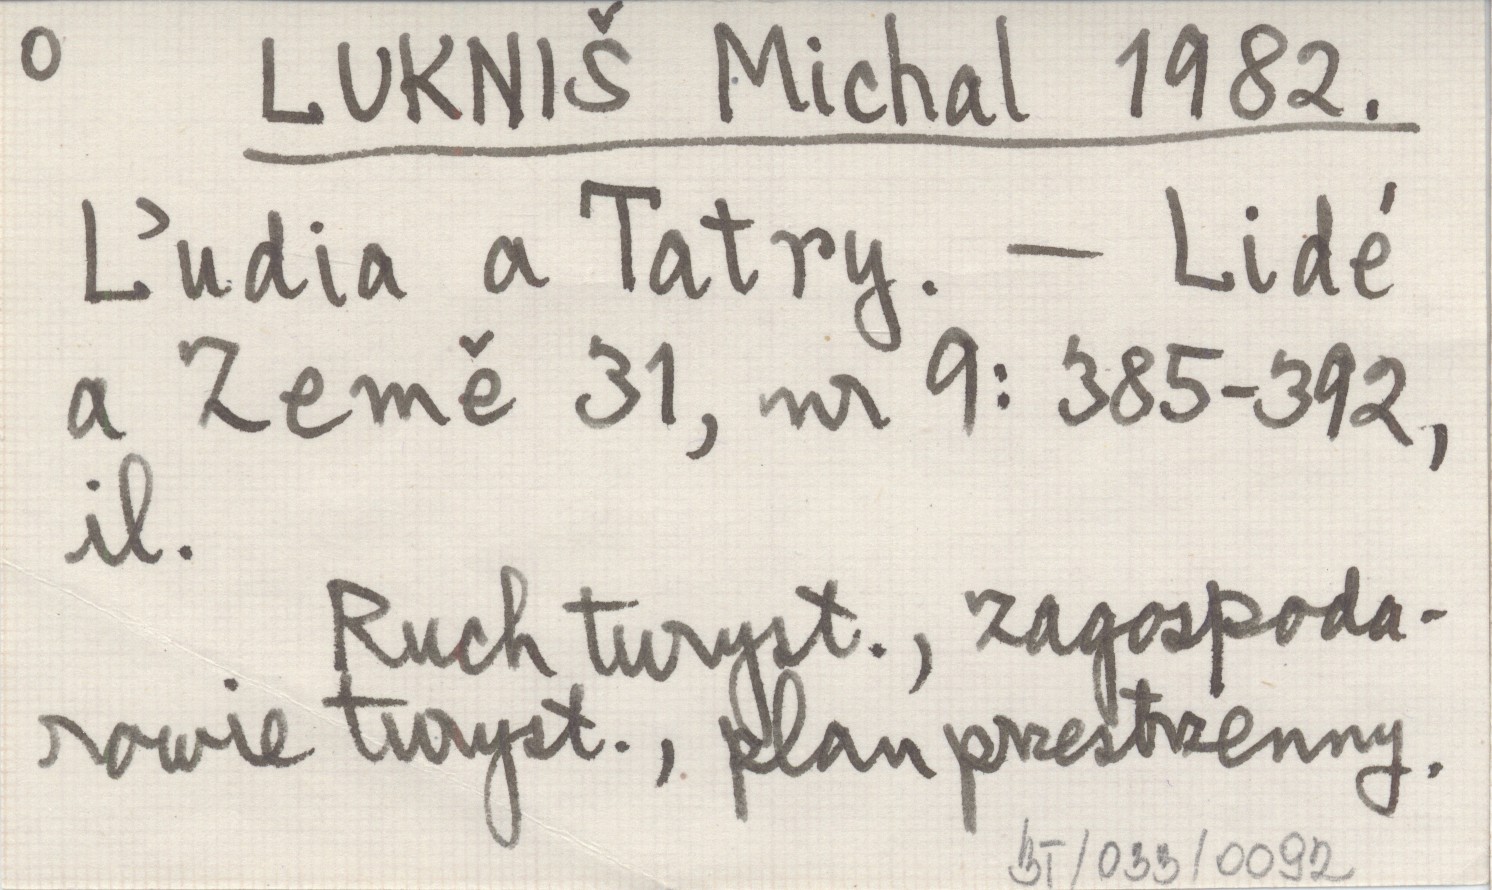 o LUKNIŠ Michal 1982.
Ľudia a Tatry. — Lidé
a Země 31, nr 9: 385-392,
il.
Ruch turyst., zagospoda-
rowie turyst., plan przestrzenny.
BT/033/0092